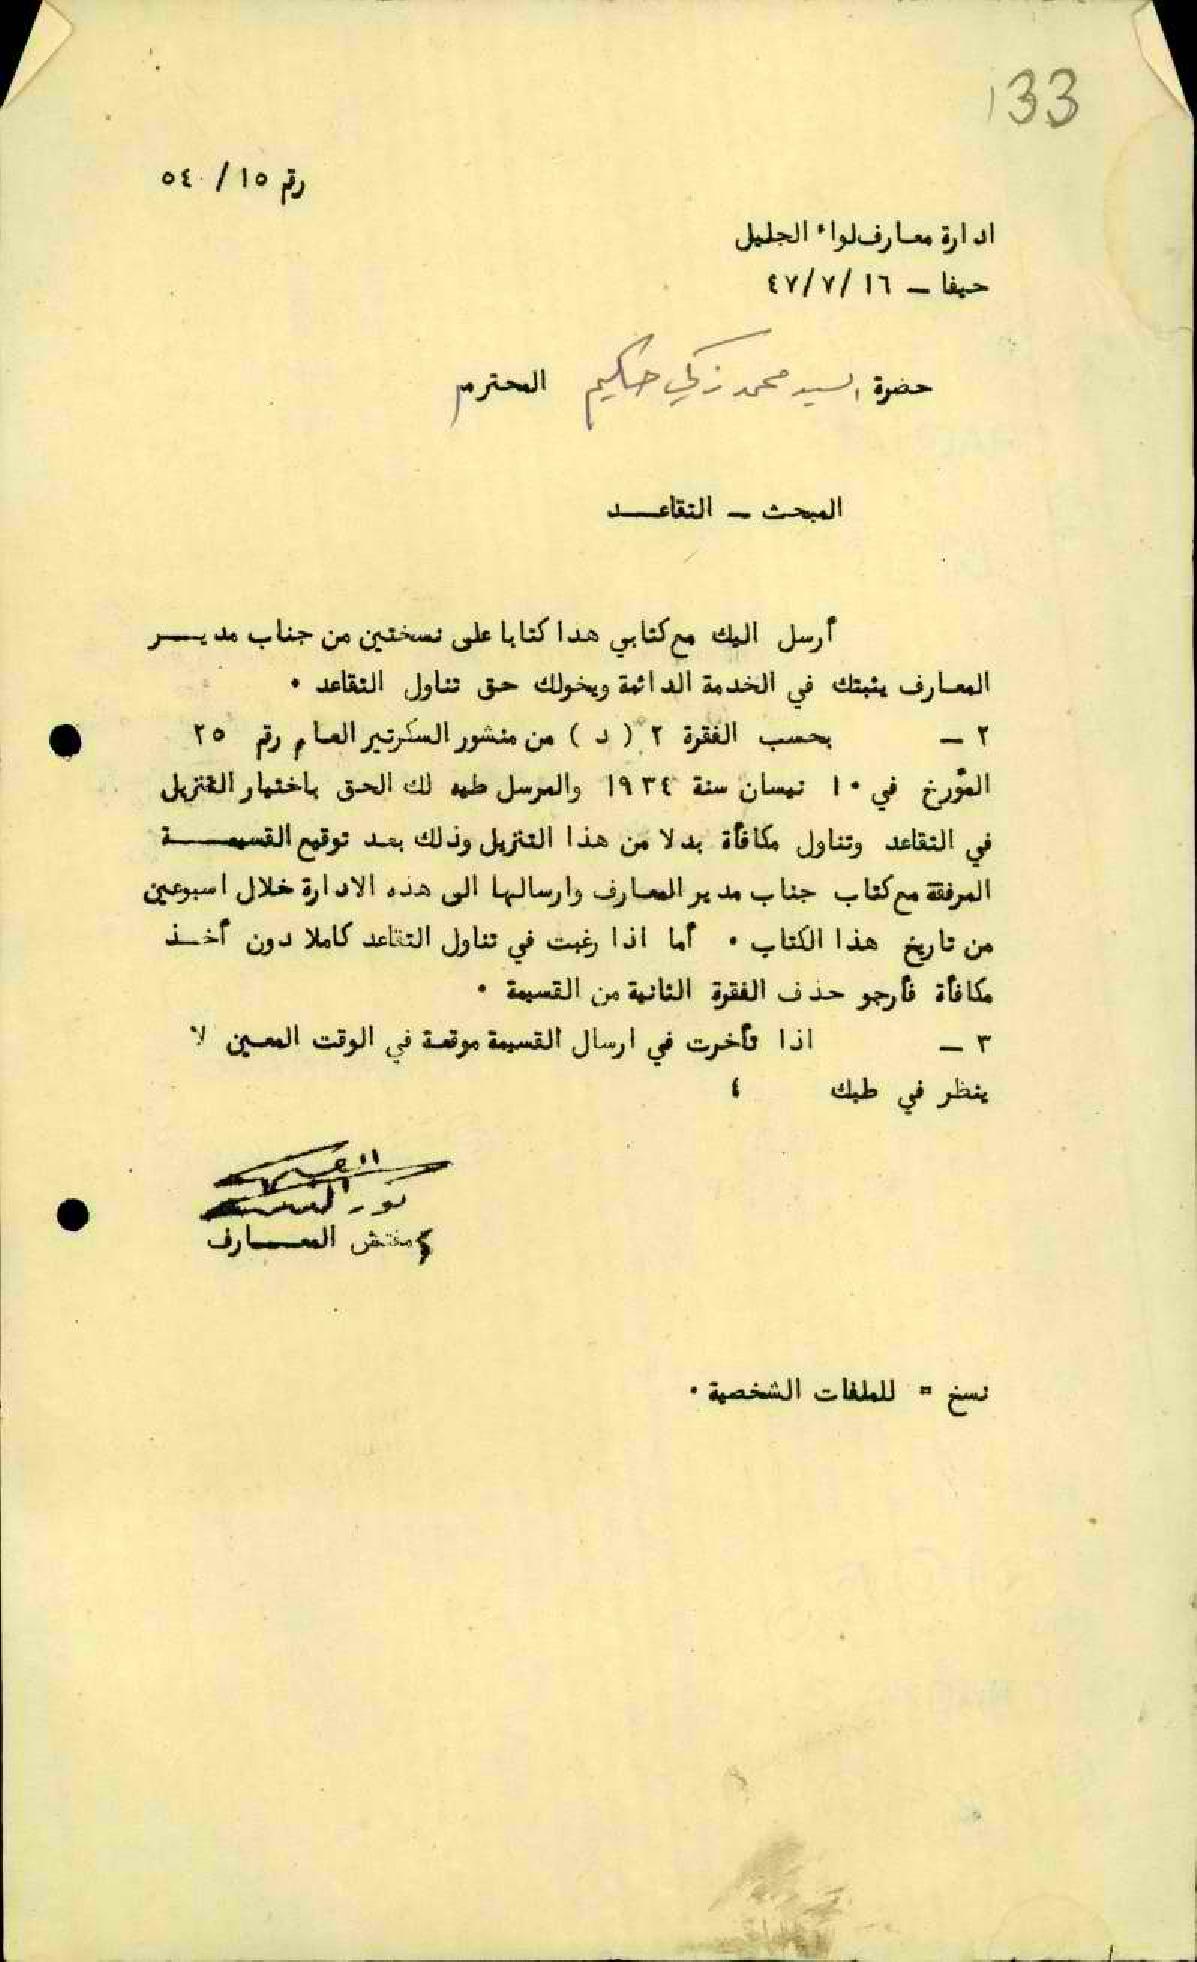 133
رقم ١٥ / ٥٤
ادارة معارف لواء الجليل
حيفا – ١٦ /٤٧/٧
حضرة السيد محمد زكي حكيم المحترم
المبحث – التقاعــد
أرسل اليك مع كتابي هدا كتابا على نسختين من جناب مديــر
المعارف يثبتك في الخدمة الدائمة ويخولك حق تناول التقاعد .
٢ – بحسب الفقرة ٢ ( د ) من منشور السكرتير العام رقم ٢٥
المؤرخ في ١٠ نيسان سنة ١٩٣٤ والمرسل طيه لك الحق باختيار التنزيل
في التقاعد وتناول مكافأة بدلا من هذا التنزيل وذلك بعد توقيع القسيمــة
المرفقة مع كتاب جناب مدير المعارف وارسالها الى هذه الادارة خلال اسبوعين
من تاريخ هذا الكتاب . أما اذا رغبت في تناول التقاعد كاملا دون أخــذ
مكافأة فأرجو حذف الفقرة الثانية من القسيمة .
٣ – اذا تأخرت في ارسال القسيمة موقعة في الوقت المعين لا
ينظر في طبك ٤
مفتش المعــارف
نسخ = للملفات الشخصية .